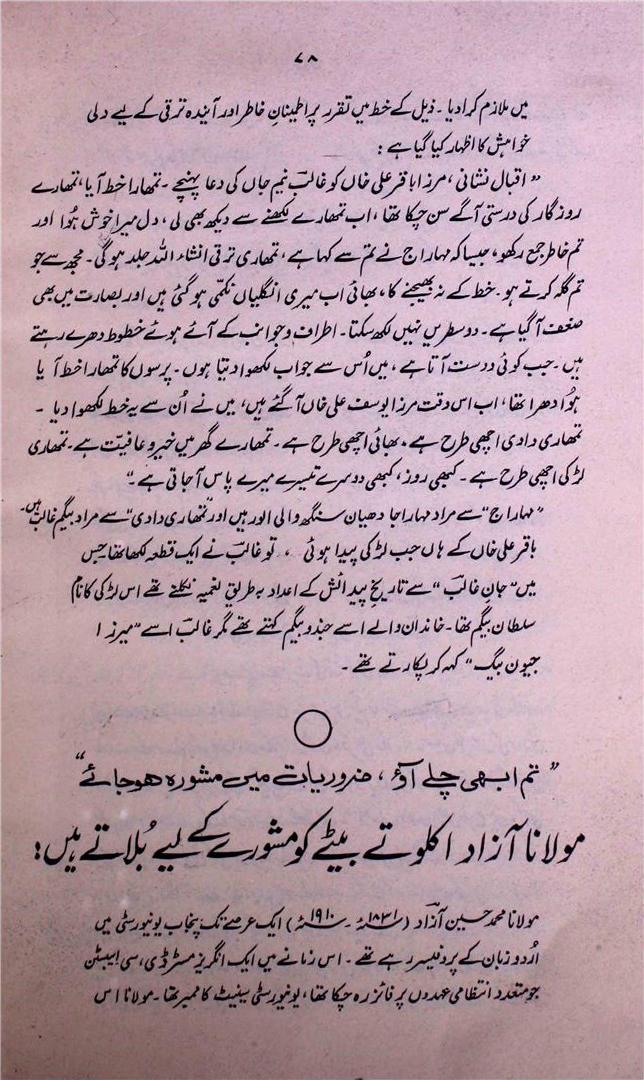 ۷۸
میں ملازم کرا دیا۔ ذیل کے خط میں تقرر پر اطمینانِ خاطر اور آیندہ ترقی کے لیے دلی
خواہش کا اظہار کیا گیا ہے :
" اقبال نشانی، مرزا باقر علی خاں کو غالبؔ نیم جاں کی دعا پہنچے۔ تمہارا خط آیا، تمھارے
روزگار کی درستی آگے سن چکا تھا، اب تمھارے لکھنے سے دیکھ بھی لی، دل میرا خوش ہُوا اور
تم خاطر جمع رکھو، جیسا کہ مہاراج نے تم سے کہا ہے، تمھاری ترقی انشاء اللہ جلد ہوگی۔ مجھ سے جو
تم گلہ کرتے ہو۔ خط کے نہ بھیجنے کا، بھائی اب میری انگلیاں نکمّی ہو گئی ہیں اور بصارت میں بھی
ضعف آ گیا ہے۔ دو سطریں نہیں لکھ سکتا۔ اطراف و جوانب کے آئے ہوئے خطوط دھرے رہتے
ہیں۔ جب کوئی دوست آتا ہے، میں اُس سے جواب لکھوا دیتا ہوں۔ پرسوں کا تمھارا خط آیا
ہُوا دھرا تھا، اب اس وقت مرزا یوسف علی خاں آ گئے ہیں، میں نے اُن سے یہ خط لکھوا دیا ۔
تمھاری دادی اچھی طرح ہے۔ بھائی اچھی طرح ہے۔ تمھارے گھر میں خیر و عافیت ہے۔ تمھاری
لڑکی اچھی طرح ہے۔ کبھی روز، کبھی دوسرے تیسرے میرے پاس آ جاتی ہے۔"
"مہاراج" سے مراد مہاراجا دھیان سنگھ والی الور ہیں اور "تمھاری دادی" سے مراد بیگم غالبؔ ہیں۔
باقر علی خاں کے ہاں جب لڑکی پیدا ہوئی ، تو غالبؔ نے ایک قطعہ لکھا تھا جس
میں "جانِ غالبؔ" سے تاریخِ پیدائش کے اعداد بہ طریقِ تعمیہ نکلتے تھے اس لڑکی کا نام
سلطان بیگم تھا۔ خاندان والے اسے جندو بیگم کہتے تھے مگر غالبؔ اسے "میرزا
جیون بیگ" کہہ کر پکارتے تھے۔
"تم ابھی چلے آؤ، ضروریات میں مشورہ ہو جائے"
مولانا آزاد اکلوتے بیٹے کو مشورے کے لیے بُلاتے ہیں!
مولانا محمد حسین آزادؔ (۱۸۳۱ء۔ ۱۹۱۰ء) ایک عرصے تک پنجاب یونیورسٹی میں
اُردو زبان کے پروفیسر رہے تھے۔ اس زمانے میں ایک انگریز مسٹر ڈی، سی ایبٹن
جو متعدد انتظامی عہدوں پر فائز رہ چکا تھا، یونیورسٹی سینیٹ کا ممبر تھا۔ مولانا اس